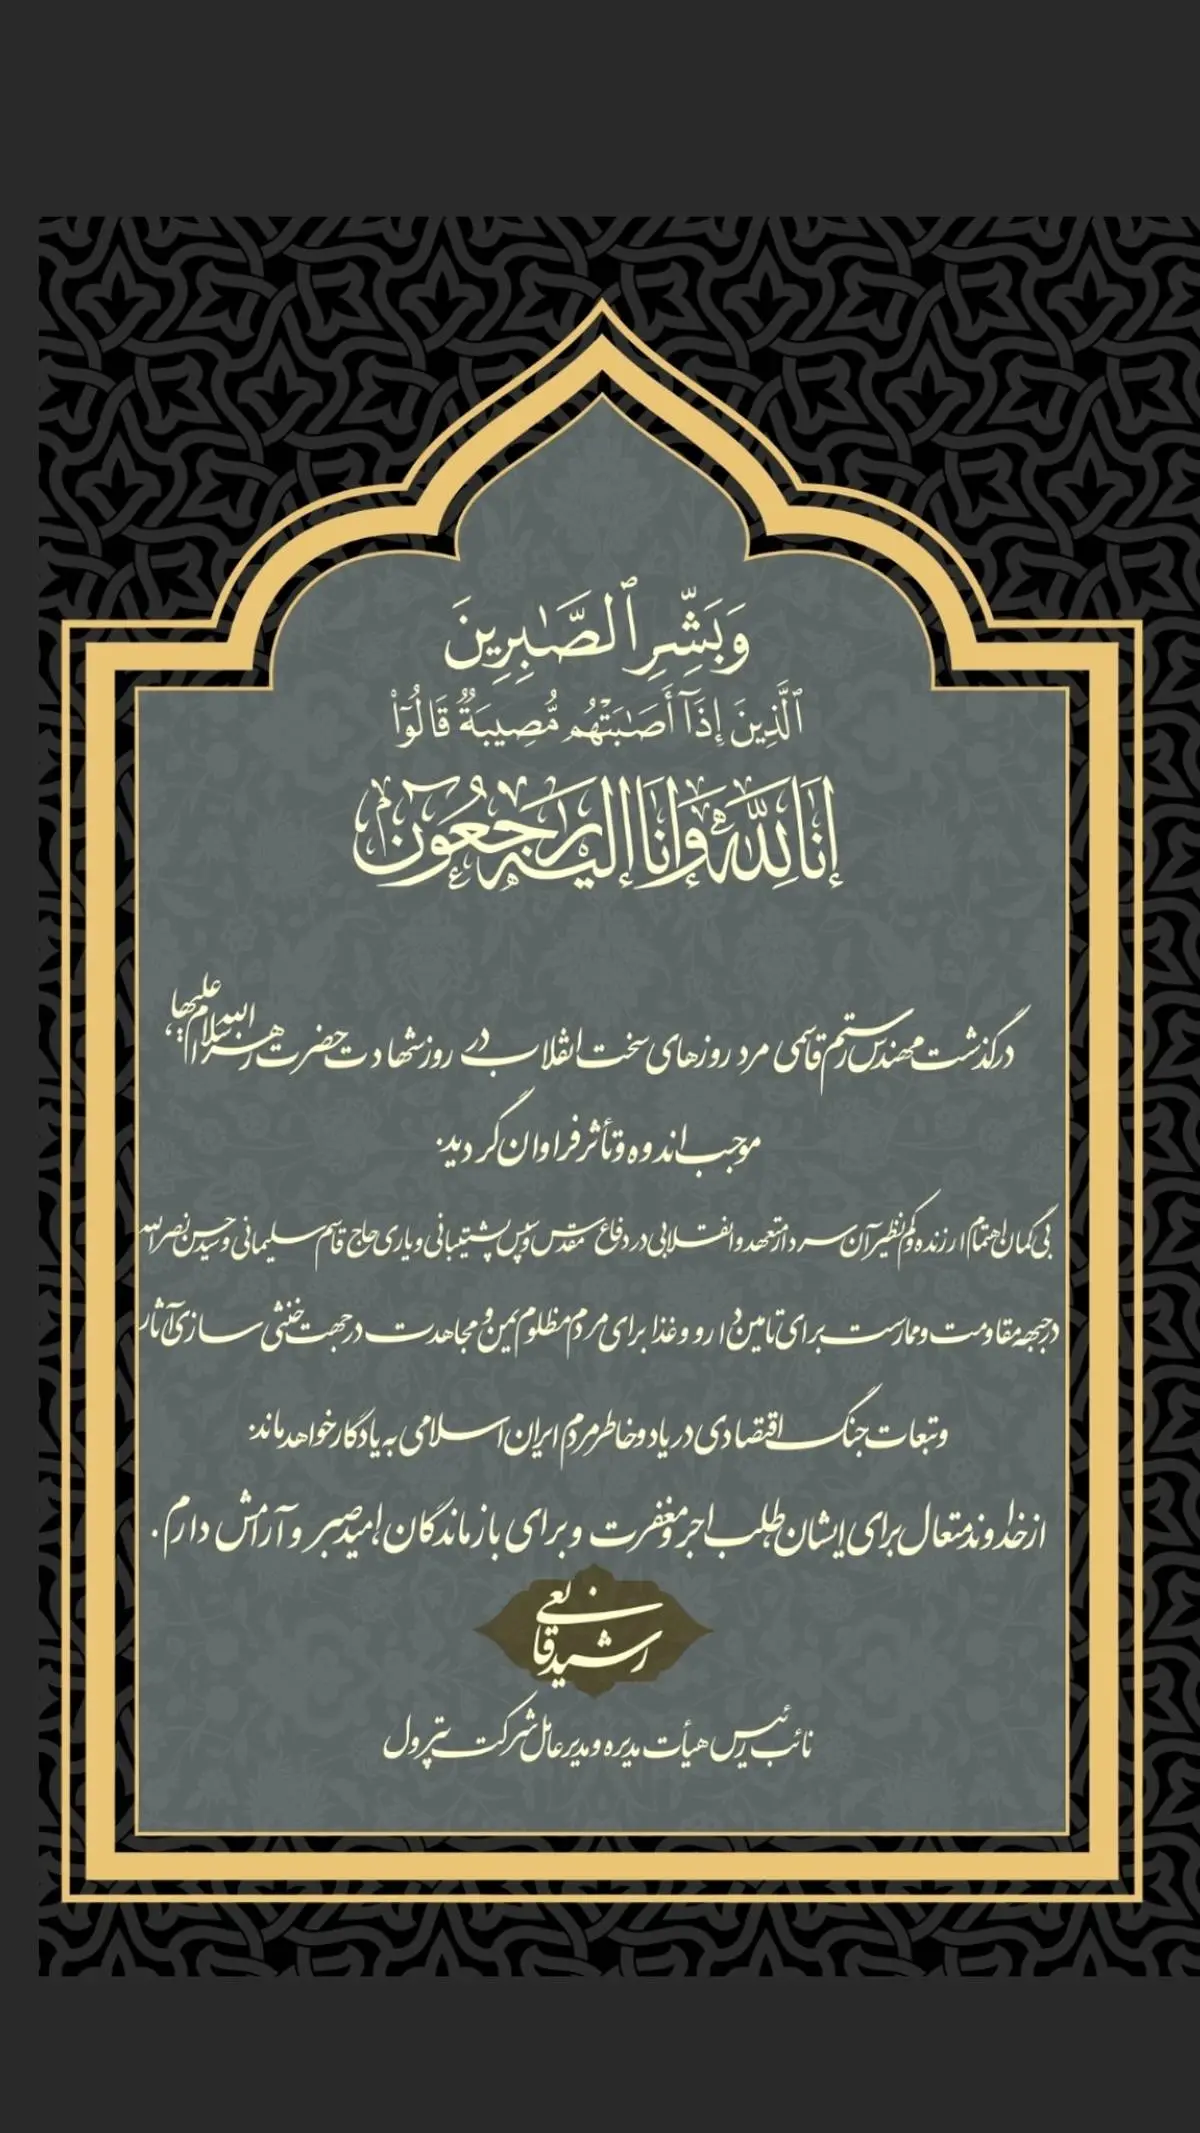 وَبَشِّرِ ٱلصَّٰبِرِينَ
ٱلَّذِينَ إِذَآ أَصَٰبَتْهُم مُّصِيبَةٌ قَالُوٓا۟
إنا لله وإنا إليه راجعون
درگذشت مهندس رستم قاسمی مرد روزهای سخت انقلاب در روز شهادت حضرت زهرا سلام الله علیها،
موجب اندوه و تأثر فراوان گردید.
بی گمان اهتمام ارزنده و کم نظیر آن سردار متعهد و انقلابی در دفاع مقدس و سپس پشتیبانی و یاری حاج قاسم سلیمانی و سید حسن نصرالله
در جبهه مقاومت و ممارست برای تامین دارو و غذا برای مردم مظلوم یمن و مجاهدت در جهت خنثی سازی آثار
و تبعات جنگ اقتصادی در یاد و خاطر مردم ایران اسلامی به یادگار خواهد ماند.
از خداوند متعال برای ایشان، طلب اجر و مغفرت و برای بازماندگان، امید صبر و آرامش دارم.
رشید قانعی
نائب رئیس هیأت مدیره و مدیرعامل شرکت پترول